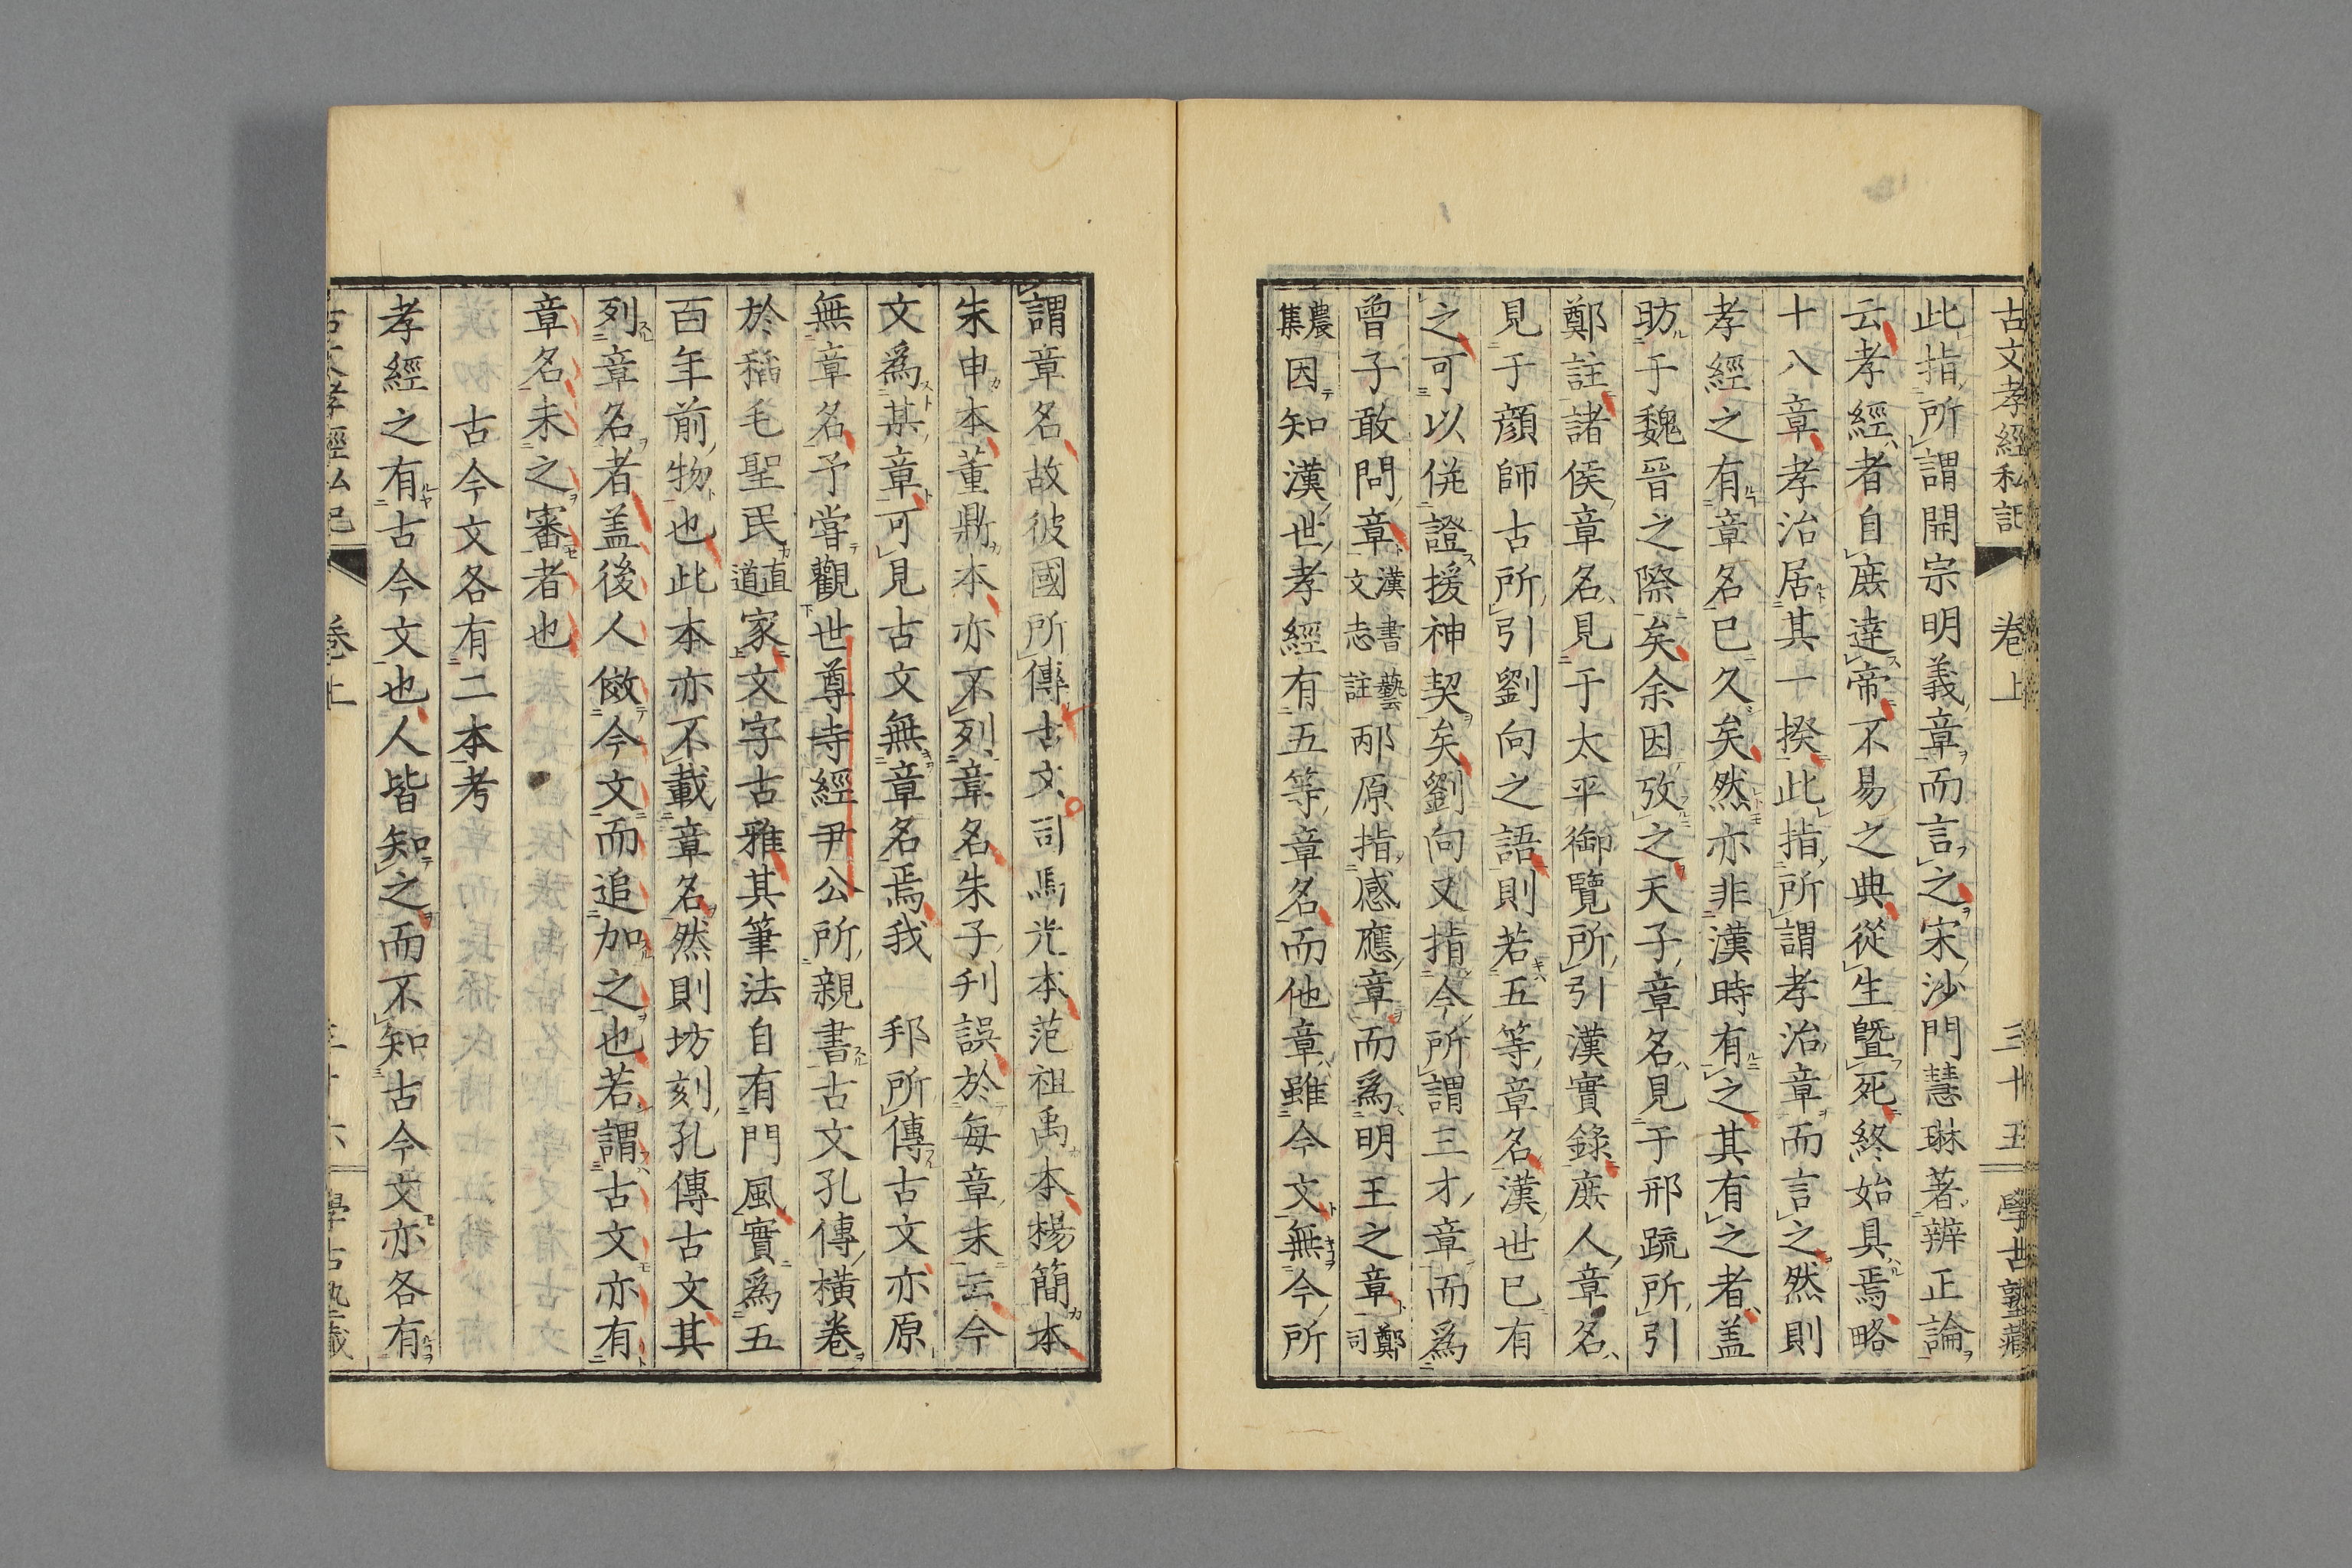 古文孝經私記 卷上 三十五 學古塾藏
此指所謂開宗明義章而言之宋沙門慧琳著辨正論
云孝經者自庶達帝不易之典從生曁死終始具焉略
十八章孝治居其一揆此指所謂孝治章而言之然則
孝經之有章名已久矣然亦非漢時有之其有之者盖
昉于魏晉之際矣余因攷之天子章名見于邢疏所引
鄭註諸侯章名見于太平御覽所引漢實錄庶人章名
見于顔師古所引劉向之語則若五等章名漢世已有
之可以併證援神契矣劉向又指今所謂三才章而爲
曾子敢問章漢書藝文志註邴原指感應章而爲明王之章鄭司
農集因知漢世孝經有五等章名而他章雖今文無今所
謂章名故彼國所傳古文司馬光本范祖禹本楊簡本
朱申本董鼎本亦不列章名朱子刋誤於每章末云今
文爲某章可見古文無章名焉我 邦所傳古文亦原
無章名予嘗觀世尊寺經尹公所親書古文孔傳橫卷
於稻毛聖民直道家文字古雅其筆法自有門風實爲五
百年前物也此本亦不載章名然則坊刻孔傳古文其
列章名者盖後人倣今文而追加之也若謂古文亦有
章名未之審者也
古今文各有二本考
孝經之有古今文也人皆知之而不知古今文亦各有